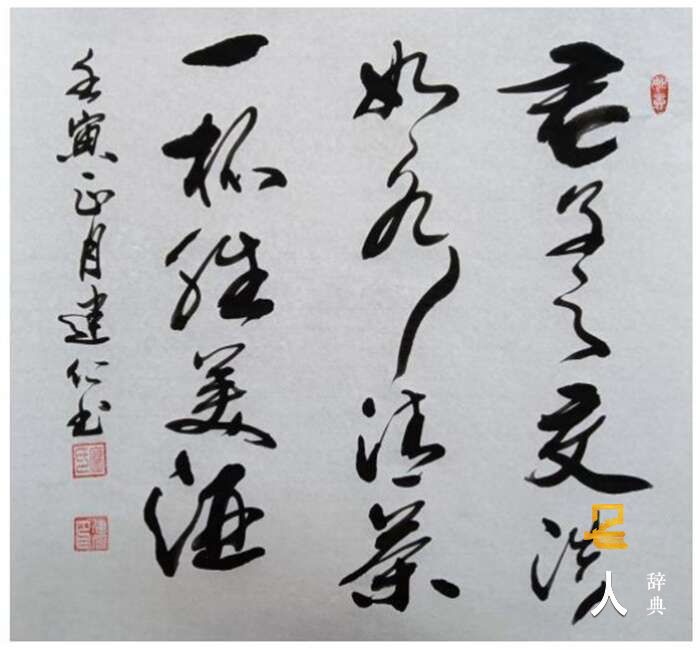 君子之交淡
如水清茶
一杯胜美酒
壬寅正月建仁书
名人
辞典